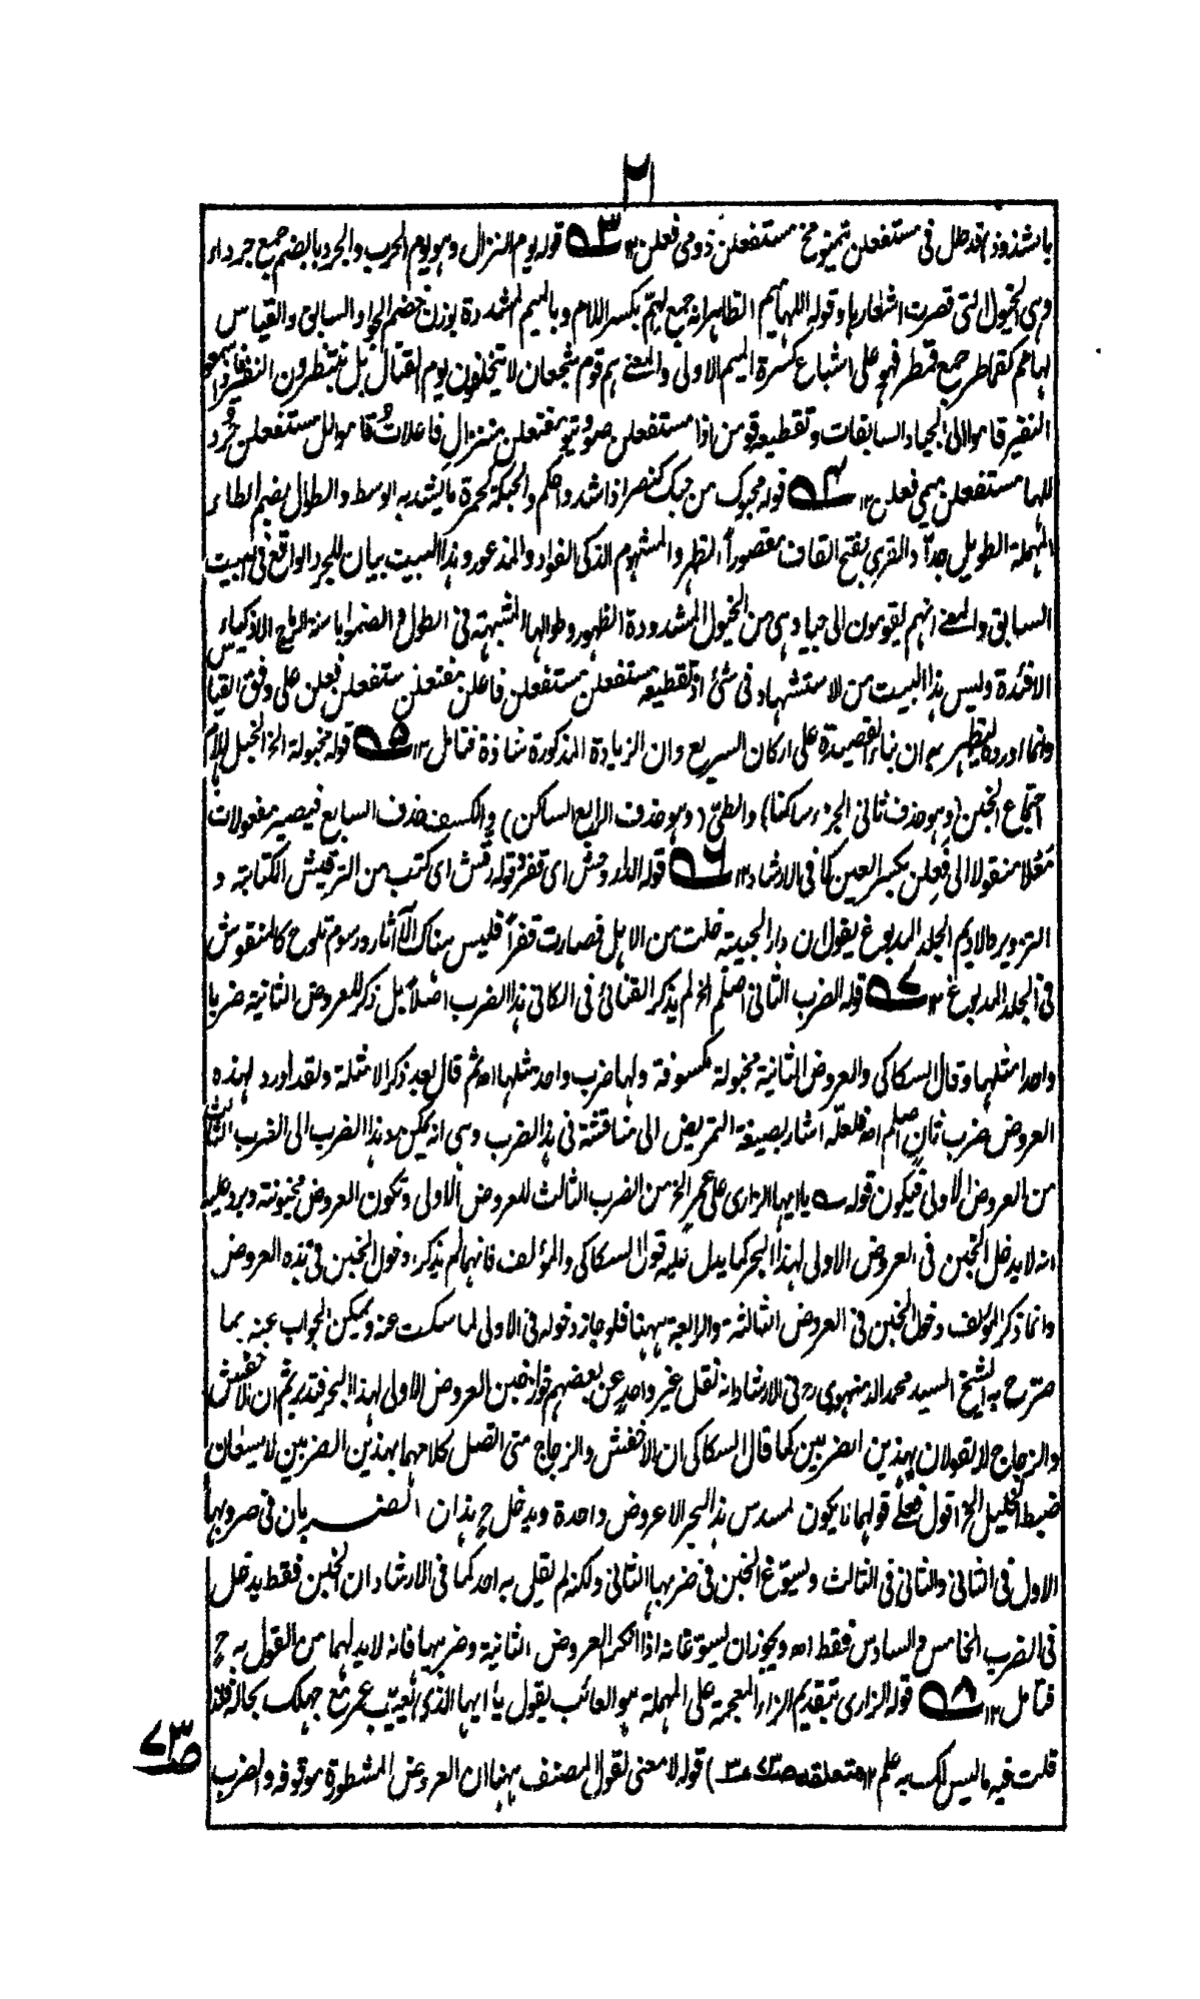 ٢
بالشذوذ) قدطل فى مستفعلن تمينو مخ مستفعلن ذومى فعلن ١٢ ٣ قوله يوم النزال وهو يوم الحرب والجرد بالضم جمع جرداء
وهى الخيول التى قصرت اشعارها وقوله اللهاميم الظاهر انه جمع لهم بكسر اللام وبالميم المشددة بوزن خضم الجواد السابق والقياس
لهامم كقماطر جمع قمطر فهو على اشباع كسرة الميم الاولى والمعنى هم قوم شجعان لا يتخلفون يوم القتال بل ينتظرون النفير فاذا سمعوا
النفير قاموا الى الجياد السابقات وتقطيعه قومن اذا مستفعلن صووتو مفتعلن مننزال فاعلات قاموالل مستفعلن جرد
للها مستفعلن ميمى فعلن ١٢ ٤ قوله محبوك من حبك كنصر اذا شد واحكم والحبكة كحمرة ما يشد به الوسط والطوال بضم الطاء
المهملة الطويل جدا والقرى بفتح القاف مقصورا الظهر والمشهوم الذكى الفواد والمذعور وهذا البيت بيان للجرد الواقع فى البيت
السابق والمعنى انهم يقومون الى جياد هى من الخيول المشدودة الظهور وطوالها المشبهة فى الطول والضمور باسنة الرماح الاذكياء
الافئدة وليس هذا البيت من الاستشهاد فى شئ اذ تقطيعه مستفعلن مستفعلن فاعلن مفتعلن مستفعلن فعلن على وفق القياس
وانما اورده ليظهر به ان بناء القصيدة على اركان السريع وان الزيادة المذكورة شاذة فتامل ١٢ ٥ قوله مخبولة الخ الخبل باللام
اجتماع الخبن (وهو حذف ثانى الجزء ساكنا) والطى (وهو حذف الرابع الساكن) والكسف حذف السابع فيصير مفعولات
معلا منقولا الى فعلن بكسر العين كما فى الارشاد ١٢ ٦ قوله الدار وحش اى قفر وقوله رقش اى كتب من الترقيش الكتابة و
التزوير والاديم الجلد المدبوغ يقول ان دار الحبيبة خلت من الاهل فصارت قفرا فليس هناك الا آثار ورسوم تلوح كالمنقوش
فى الجلد المدبوغ ١٢ ٧ قوله الضرب الثانى اصلم الخ لم يذكر القنائى فى الكافى هذا الضرب اصلا بل ذكر للعروض الثانية ضربا
واحدا مثلها وقال السكاكى والعروض الثانية مخبولة مكسوفة ولها ضرب واحد مثلها اه ثم قال بعد ذكر الامثلة ولقد اورد لهذه
العروض ضرب ثان اصلم اه فلعله اشار بصيغة التمريض الى مناقشة فى هذا الضرب وهى انه يمكن عد هذا الضرب الى الضرب الثالث
من العروض الاولى فيكون قوله يا ايها الزارى على عمر الخ من الضرب الثالث للعروض الاولى وتكون العروض مخبونة ويرد عليه
انه لا يدخل الخبن فى العروض الاولى لهذا البحر كما يدل عليه قول السكاكى والمؤلف فانهما لم يذكرا دخول الخبن فى هذه العروض
وانما ذكر المؤلف دخول الخبن فى العروض الثالثة والرابعة ههنا فلو جاز دخوله فى الاولى لما سكت عنه ويمكن الجواب عنه بما
صرح به الشيخ السيد محمد الدمنهورى رح فى الارشاد انه نقل غير واحد عن بعضهم جواز خبن العروض الاولى لهذا البحر فتدبر ثم ان الاخفش
والزجاج لا يقولان بهذين الضربين كما قال السكاكى ان الاخفش والزجاج متى اتصل كلامهما بهذين الضربين لا يسعان
ضبط الخليل الخ اقول فعلى قولهما نا يكون لمسدس هذا البحر الا عروض واحدة ويدخل ح هذان الضربان فى ضروبها
الاول فى الثانى والثانى فى الثالث ويسوغ الخبن فى ضربها الثانى ولكنه لم يقل به احد كما فى الارشاد ان الخبن فقط يدخل
فى الضرب الخامس والسادس فقط اه ويجوز ان يسوغانه اذا انكرا العروض الثانية وضربيها فانه لا بد لهما من القول به ح
فتامل ١٢ ٨ قوله الزارى بتقديم الزاء المعجمة على المهملة هو العائب يقول يا ايها الذى يعيب عمر مع جهلك بحاله فقد
قلت فيه ما ليس لك به علم ١٢ (متعلقه ص٧٣) قوله لا معنى لقول المصنف ههنا ان العروض المشطورة موقوفة والضرب
ص٧٣